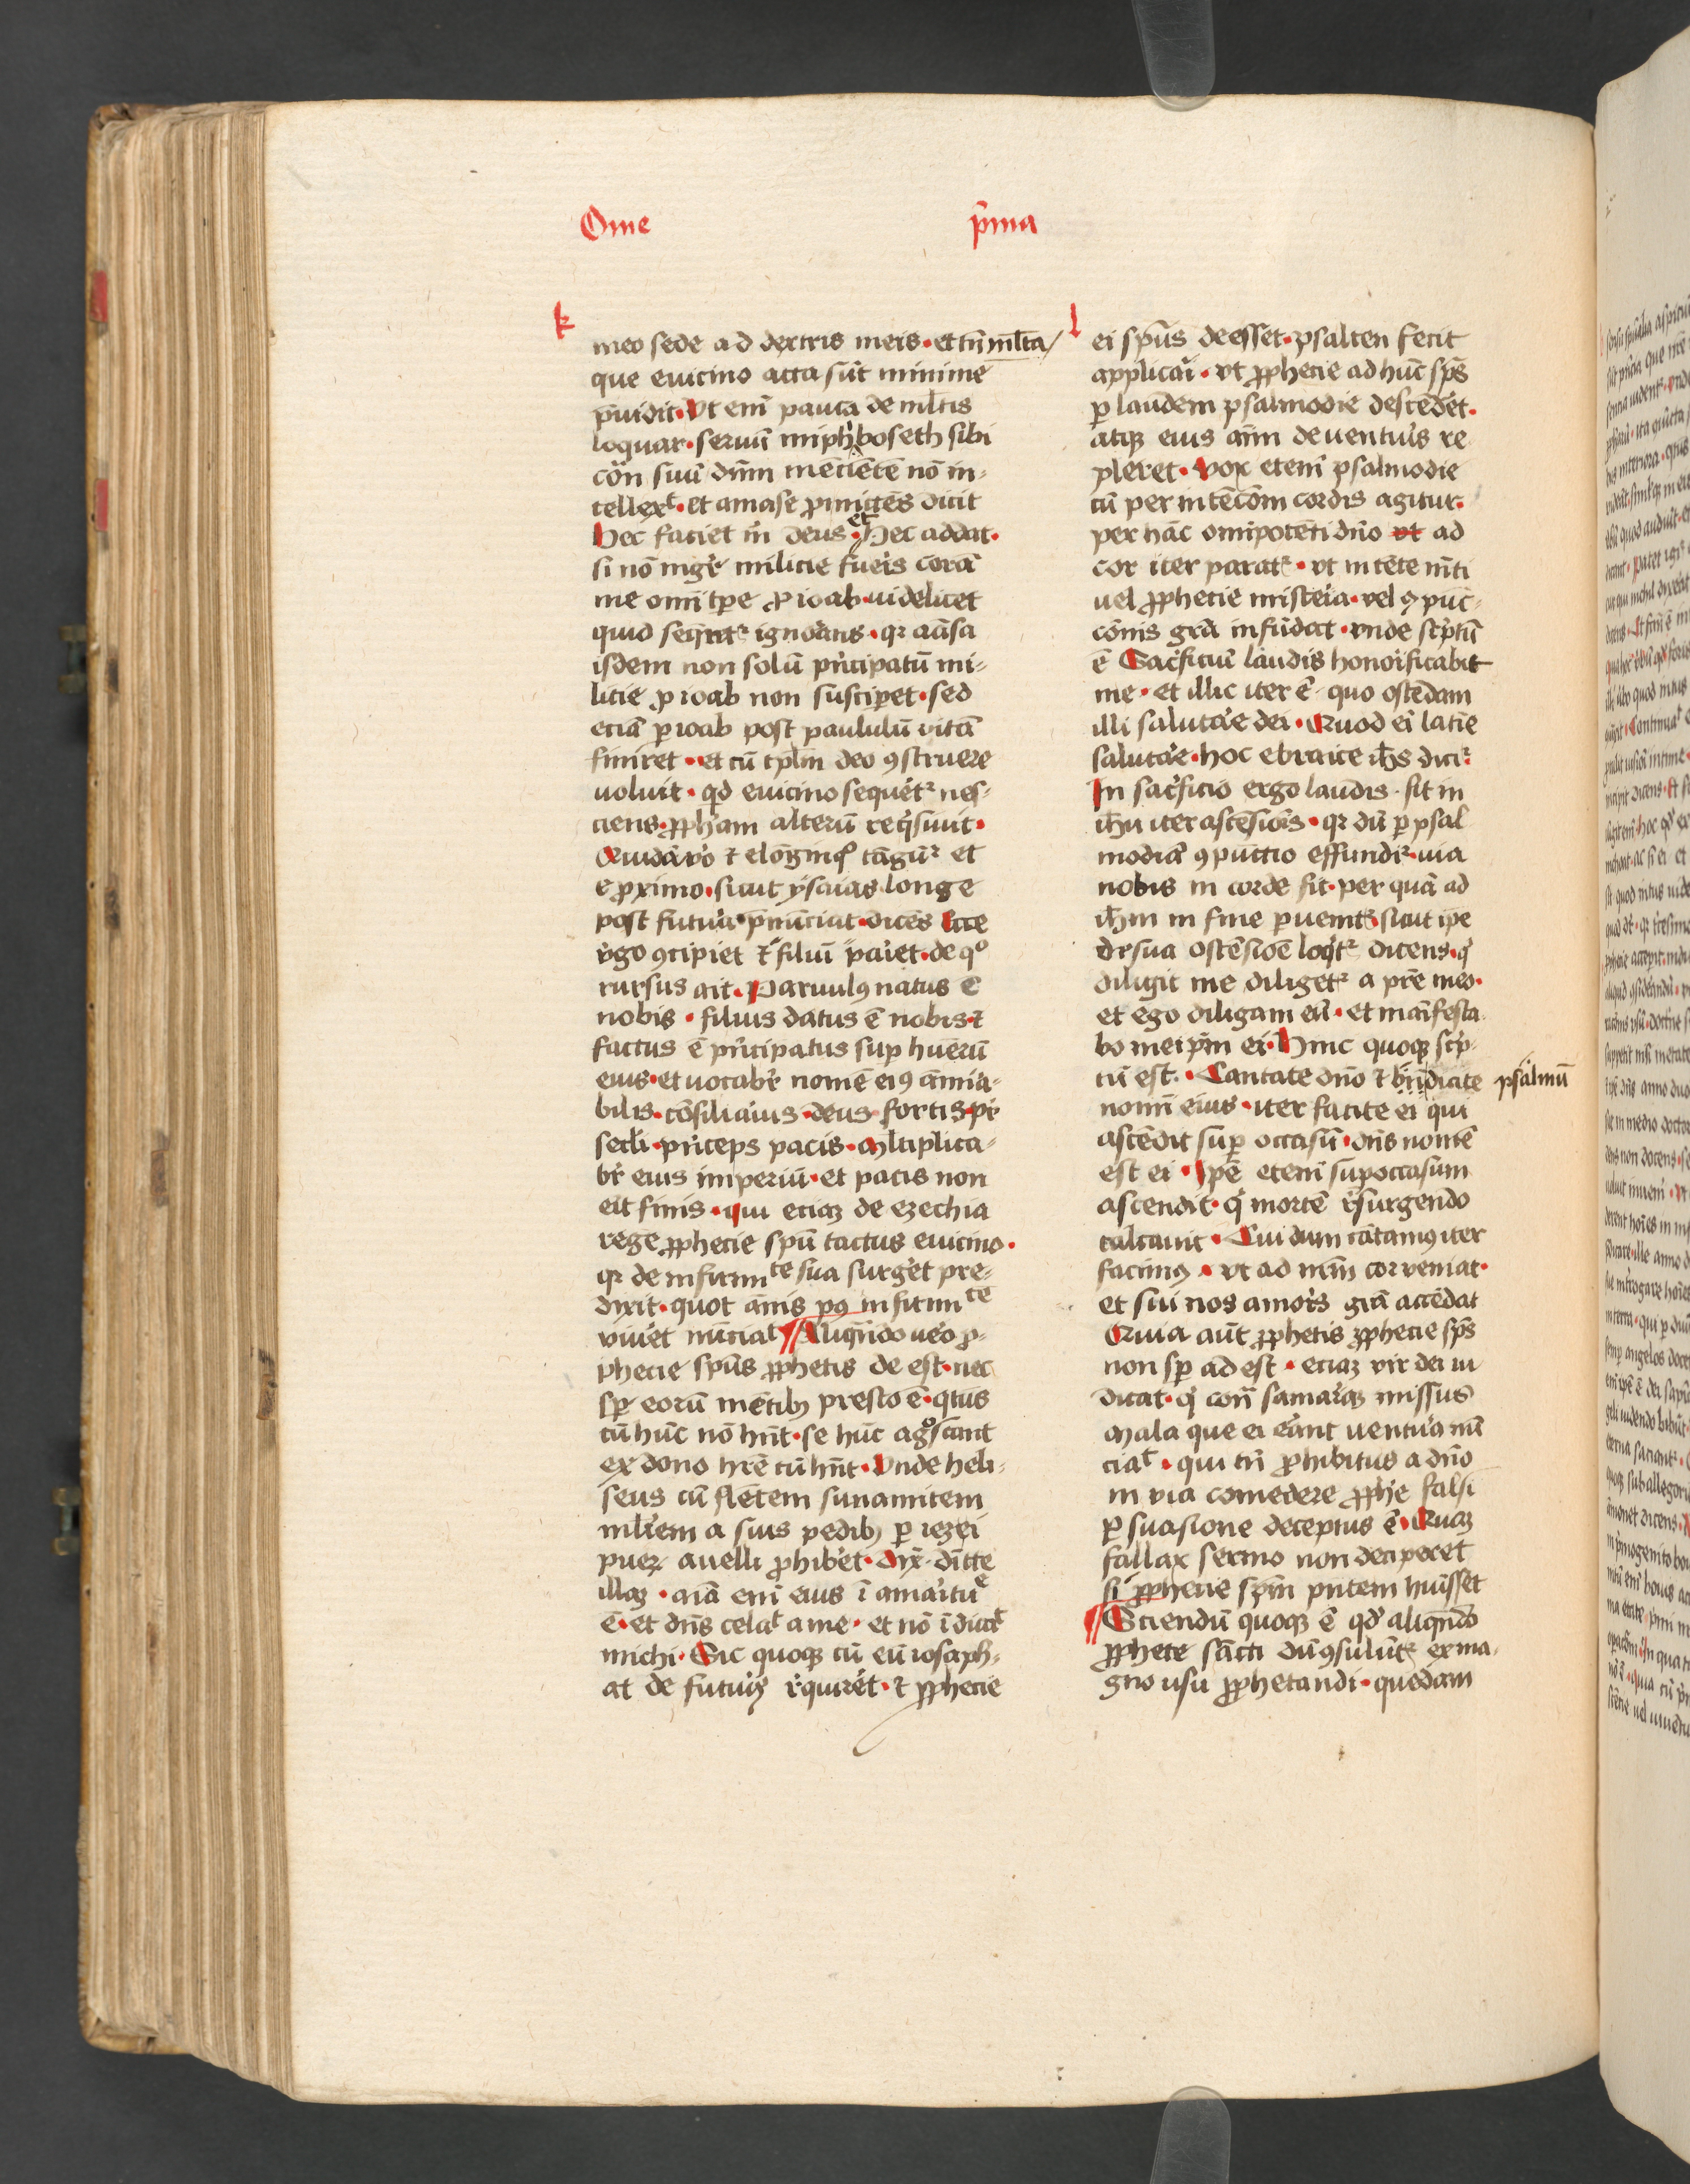 Ome p̄ma
k
meo sede a d dextris meis · et tn̄ ml̄ta
que euicino acta sūt minime
p̄uidit · Vt em̄ pauca de ml̄tis
loquar · seruū miphboseth sibi
cōn suū dn̄m mēciētē nō in-
tellexᵗ · et amase ꝓmittēs dicit
Hec faciet m̄ deus · et hec addat ·
si nō mgr̄ milicie fueris corā
me om̄i tꝑe ꝓ ioab · uidelicet
quid seq̄retᷣ ignorans · qꝛ causa
isdem non solū pn̄cipatū mi-
licie ꝓ ioab non susciꝑet · sed
eciā ꝑ ioab post paululū vitā
finiret · et cū tp̄lm deo ꝯstruere
uoluit · qd euicino sequet̄ᷣ nes-
ciens · ꝓpham alterū req̄siuit ·
Quidā v̄o ⁊ elōginqͦ tāgūᷣ et
e ꝓximo · sicut ysaias longe
post futura p̄nūciat · dicēs Ecce
v̄go ꝯcipiet ⁊ filiū pariet · de qͦ
rursus ait · Paruulꝰ natus ē
nobis · filius datus ē nobis · ⁊
factus ē pn̄cipatus suꝑ huērū
eius · et uocabr̄ nomē eiꝰ āmira-
bilis · cōsiliarius · deus fortis · pr̄
secl̄i · pn̄ceps pacis · Ml̄tiplica-
br̄ eius imperiū · et pacis non
erit finis · qui eciaꝫ de ezechia
rege ꝓphecie spū tactus euicino ·
qꝛ de infirmᵗᵉ sua surget pre-
dixit · quot ānis pꝰ infirmᵗᵉ
viuet nūciaᵗ Aliqn̄do uero ꝓ-
phecie spūs ꝓphetis de est · nec
sꝑ eorū mētibꝫ presto ē · qtus
cū hūc nō hn̄t · se hūc agͦscant
ex dono hr̄e cū hn̄t · Vnde heli-
seus cū flētem sunamitem
ml̄rem a suis pedibꝫ ꝑ iezei
pueꝝ auelli ꝓhibet · Dix̄ · dīcte
illaꝫ · aīa em̄ eius ī amaritūᵉ
ē · et dn̄s celaᵗ a me · et nō īdicaᵗ
michi · Sic quoqꝫ cū eū iosaph-
at de futuris r̄quiret · ⁊ ꝓphecie
l
ei spūs deesset · psalten fecit
applicari · vt ꝓphecie ad hūc spūs
ꝑ laudem psalmodie descēdet ·
atqꝫ eius aīm de uenturis re
pleret · Vox etem̄ psalmodie
cū per intēcōm cordis agitur
per hāc omipotēti dn̄o ad
cor iter paratᷣ · vt intēte mēti
uel ꝓphecie misteria · vel ꝯpūc-
cōnis grā infūdat · vnde scptū
ē Sacrificiū laudis honorificabit
me · et illic iter ē · quo ostēdam
illi salutare dei · Quod ei latīe
salutare · hoc ebraice ih̄s dicīᷣ
In sacrificio ergo laudis · fit in
ih̄u iter ascēsionis · qꝛ dū ꝑ psal
modiā ꝯpūctio effundīᷣ · uia
nobis in corde fit · per quā ad
ih̄m in fine ꝑuenitᷣ · sicut ipe
de sua ostēsiōe loqtᷣ dicens · q̄
diligit me diligetᷣ a pr̄e meo ·
et ego diligam eū · et manifesta
bo meip̄m ei · Hinc quoqꝫ scp-
tū est · Cantate dn̄o ⁊ bn̄dicite psalmū
nomī eius · iter facite ei qui
ascēdit suꝑ occasū · dn̄s nomē
est ei · Ip̄e etem̄ suꝑ occasum
ascendit · q̄ mortē r̄surgendo
calcauit · Cui dum cātamꝰ iter
facimꝰ · vt ad nr̄m cor veniat ·
et sui nos amoris grā accēdat
Quia aūt ꝓphetis ꝓphecie spūs
non sꝑ adest · eciaꝫ vir dei in
dicat · q̄ con̄ samariaꝫ missus
Mala que ei erant uentura nū
ciaᵗ · qui tn̄ ꝓhibitus a dn̄o
in via comedere ꝓphe falsi
ꝑsuasione deceptus ē · Quaꝫ
fallax sermo non deciperet
si ꝓphecie spm̄ pn̄tem huīsset
Sciendū quoqꝫ ē qd aliqn̄do
ꝓphete sācti dū ꝯsulūtᷣ ex ma-
gno usu ꝓphetandi · quedam